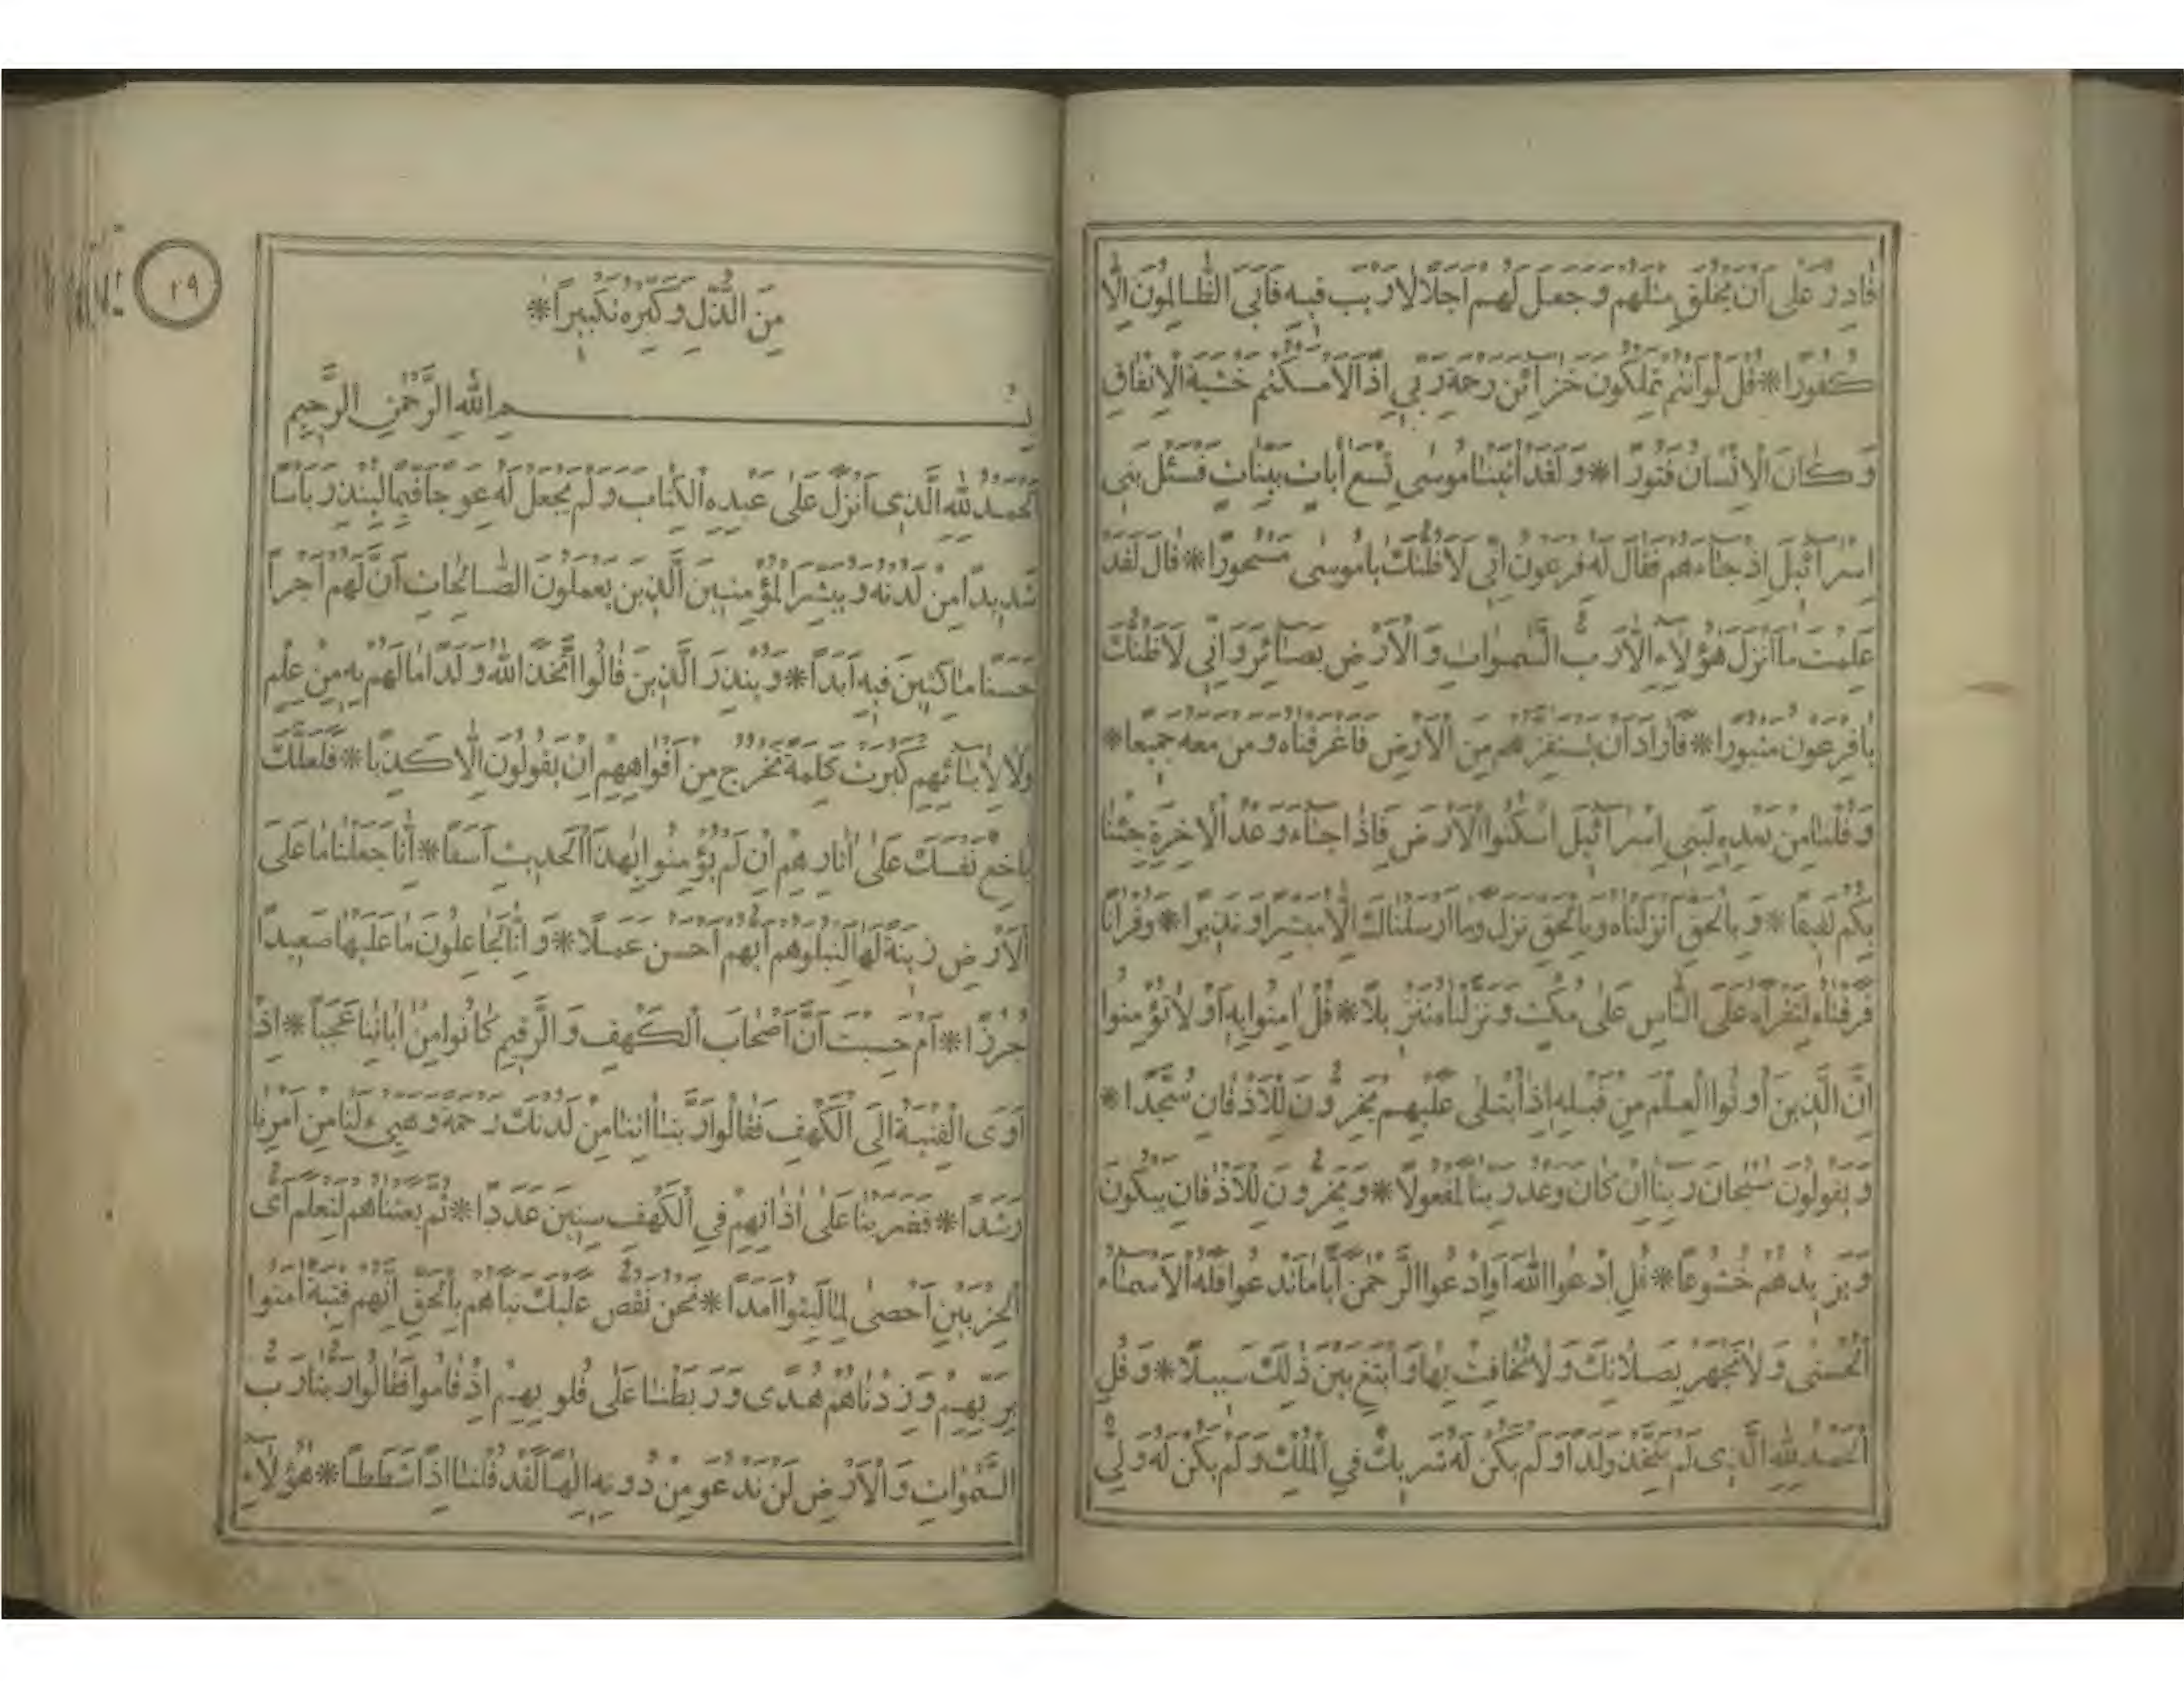 قَادِرٌ عَلٰى اَنْ يَخْلُقَ مِثْلَهُمْ وَجَعَلَ لَهُمْ اَجَلًا لَا رَيْبَ فِيهِ فَاَبَى الظَّالِمُونَ اِلَّا
كُفُورًا * قُلْ لَوْ اَنْتُمْ تَمْلِكُونَ خَزَائِنَ رَحْمَةِ رَبِّي اِذًا لَاَمْسَكْتُمْ خَشْيَةَ الْاِنْفَاقِ
وَكَانَ الْاِنْسَانُ قَتُورًا * وَلَقَدْ اٰتَيْنَا مُوسٰى تِسْعَ اٰيَاتٍ بَيِّنَاتٍ فَسْئَلْ بَنِى
اِسْرَائِيلَ اِذْ جَاءَهُمْ فَقَالَ لَهُ فِرْعَوْنُ اِنِّى لَاَظُنُّكَ يَا مُوسٰى مَسْحُورًا * قَالَ لَقَدْ
عَلِمْتَ مَا اَنْزَلَ هٰؤُلَاءِ اِلَّا رَبُّ السَّمٰوَاتِ وَالْاَرْضِ بَصَائِرَ وَاِنِّى لَاَظُنُّكَ
يَا فِرْعَوْنُ مَثْبُورًا * فَاَرَادَ اَنْ يَسْتَفِزَّهُمْ مِنَ الْاَرْضِ فَاَغْرَقْنَاهُ وَمَنْ مَعَهُ جَمِيعًا *
وَقُلْنَا مِنْ بَعْدِهِ لِبَنِى اِسْرَائِيلَ اسْكُنُوا الْاَرْضَ فَاِذَا جَاءَ وَعْدُ الْاٰخِرَةِ جِئْنَا
بِكُمْ لَفِيفًا * وَبِالْحَقِّ اَنْزَلْنَاهُ وَبِالْحَقِّ نَزَلَ وَمَا اَرْسَلْنَاكَ اِلَّا مُبَشِّرًا وَنَذِيرًا * وَقُرْاٰنًا
فَرَقْنَاهُ لِتَقْرَاَهُ عَلَى النَّاسِ عَلٰى مُكْثٍ وَنَزَّلْنَاهُ تَنْزِيلًا * قُلْ اٰمِنُوا بِهِ اَوْ لَا تُؤْمِنُوا
اِنَّ الَّذِينَ اُوتُوا الْعِلْمَ مِنْ قَبْلِهِ اِذَا يُتْلٰى عَلَيْهِمْ يَخِرُّونَ لِلْاَذْقَانِ سُجَّدًا *
وَيَقُولُونَ سُبْحَانَ رَبِّنَا اِنْ كَانَ وَعْدُ رَبِّنَا لَمَفْعُولًا * وَيَخِرُّونَ لِلْاَذْقَانِ يَبْكُونَ
وَيَزِيدُهُمْ خُشُوعًا * قُلِ ادْعُوا اللّٰهَ اَوِ ادْعُوا الرَّحْمٰنَ اَيًّا مَا تَدْعُوا فَلَهُ الْاَسْمَاءُ
الْحُسْنٰى وَلَا تَجْهَرْ بِصَلَاتِكَ وَلَا تُخَافِتْ بِهَا وَابْتَغِ بَيْنَ ذٰلِكَ سَبِيلًا * وَقُلِ
الْحَمْدُ لِلّٰهِ الَّذِى لَمْ يَتَّخِذْ وَلَدًا وَلَمْ يَكُنْ لَهُ شَرِيكٌ فِي الْمُلْكِ وَلَمْ يَكُنْ لَهُ وَلِيٌّ
١٩
مِنَ الذُّلِّ وَكَبِّرْهُ تَكْبِيرًا *
بِسْمِ اللّٰهِ الرَّحْمٰنِ الرَّحِيمِ
اَلْحَمْدُ لِلّٰهِ الَّذِى اَنْزَلَ عَلٰى عَبْدِهِ الْكِتَابَ وَلَمْ يَجْعَلْ لَهُ عِوَجًا قَيِّمًا لِيُنْذِرَ بَأْسًا
شَدِيدًا مِنْ لَدُنْهُ وَيُبَشِّرَ الْمُؤْمِنِينَ الَّذِينَ يَعْمَلُونَ الصَّالِحَاتِ اَنَّ لَهُمْ اَجْرًا
حَسَنًا مَاكِثِينَ فِيهِ اَبَدًا * وَيُنْذِرَ الَّذِينَ قَالُوا اتَّخَذَ اللّٰهُ وَلَدًا مَا لَهُمْ بِهِ مِنْ عِلْمٍ
وَلَا لِاٰبَائِهِمْ كَبُرَتْ كَلِمَةً تَخْرُجُ مِنْ اَفْوَاهِهِمْ اِنْ يَقُولُونَ اِلَّا كَذِبًا * فَلَعَلَّكَ
بَاخِعٌ نَفْسَكَ عَلٰى اٰثَارِهِمْ اِنْ لَمْ يُؤْمِنُوا بِهٰذَا الْحَدِيثِ اَسَفًا * اِنَّا جَعَلْنَا مَا عَلَى
الْاَرْضِ زِينَةً لَهَا لِنَبْلُوَهُمْ اَيُّهُمْ اَحْسَنُ عَمَلًا * وَاِنَّا لَجَاعِلُونَ مَا عَلَيْهَا صَعِيدًا
جُرُزًا * اَمْ حَسِبْتَ اَنَّ اَصْحَابَ الْكَهْفِ وَالرَّقِيمِ كَانُوا مِنْ اٰيَاتِنَا عَجَبًا * اِذْ
اَوَى الْفِتْيَةُ اِلَى الْكَهْفِ فَقَالُوا رَبَّنَا اٰتِنَا مِنْ لَدُنْكَ رَحْمَةً وَهَيِّئْ لَنَا مِنْ اَمْرِنَا
رَشَدًا * فَضَرَبْنَا عَلٰى اٰذَانِهِمْ فِي الْكَهْفِ سِنِينَ عَدَدًا * ثُمَّ بَعَثْنَاهُمْ لِنَعْلَمَ اَىُّ
الْحِزْبَيْنِ اَحْصٰى لِمَا لَبِثُوا اَمَدًا * نَحْنُ نَقُصُّ عَلَيْكَ نَبَاَهُمْ بِالْحَقِّ اِنَّهُمْ فِتْيَةٌ اٰمَنُوا
بِرَبِّهِمْ وَزِدْنَاهُمْ هُدًى وَرَبَطْنَا عَلٰى قُلُوبِهِمْ اِذْ قَامُوا فَقَالُوا رَبُّنَا رَبُّ
السَّمٰوَاتِ وَالْاَرْضِ لَنْ نَدْعُوَ مِنْ دُونِهِ اِلٰهًا لَقَدْ قُلْنَا اِذًا شَطَطًا * هٰؤُلَاءِ